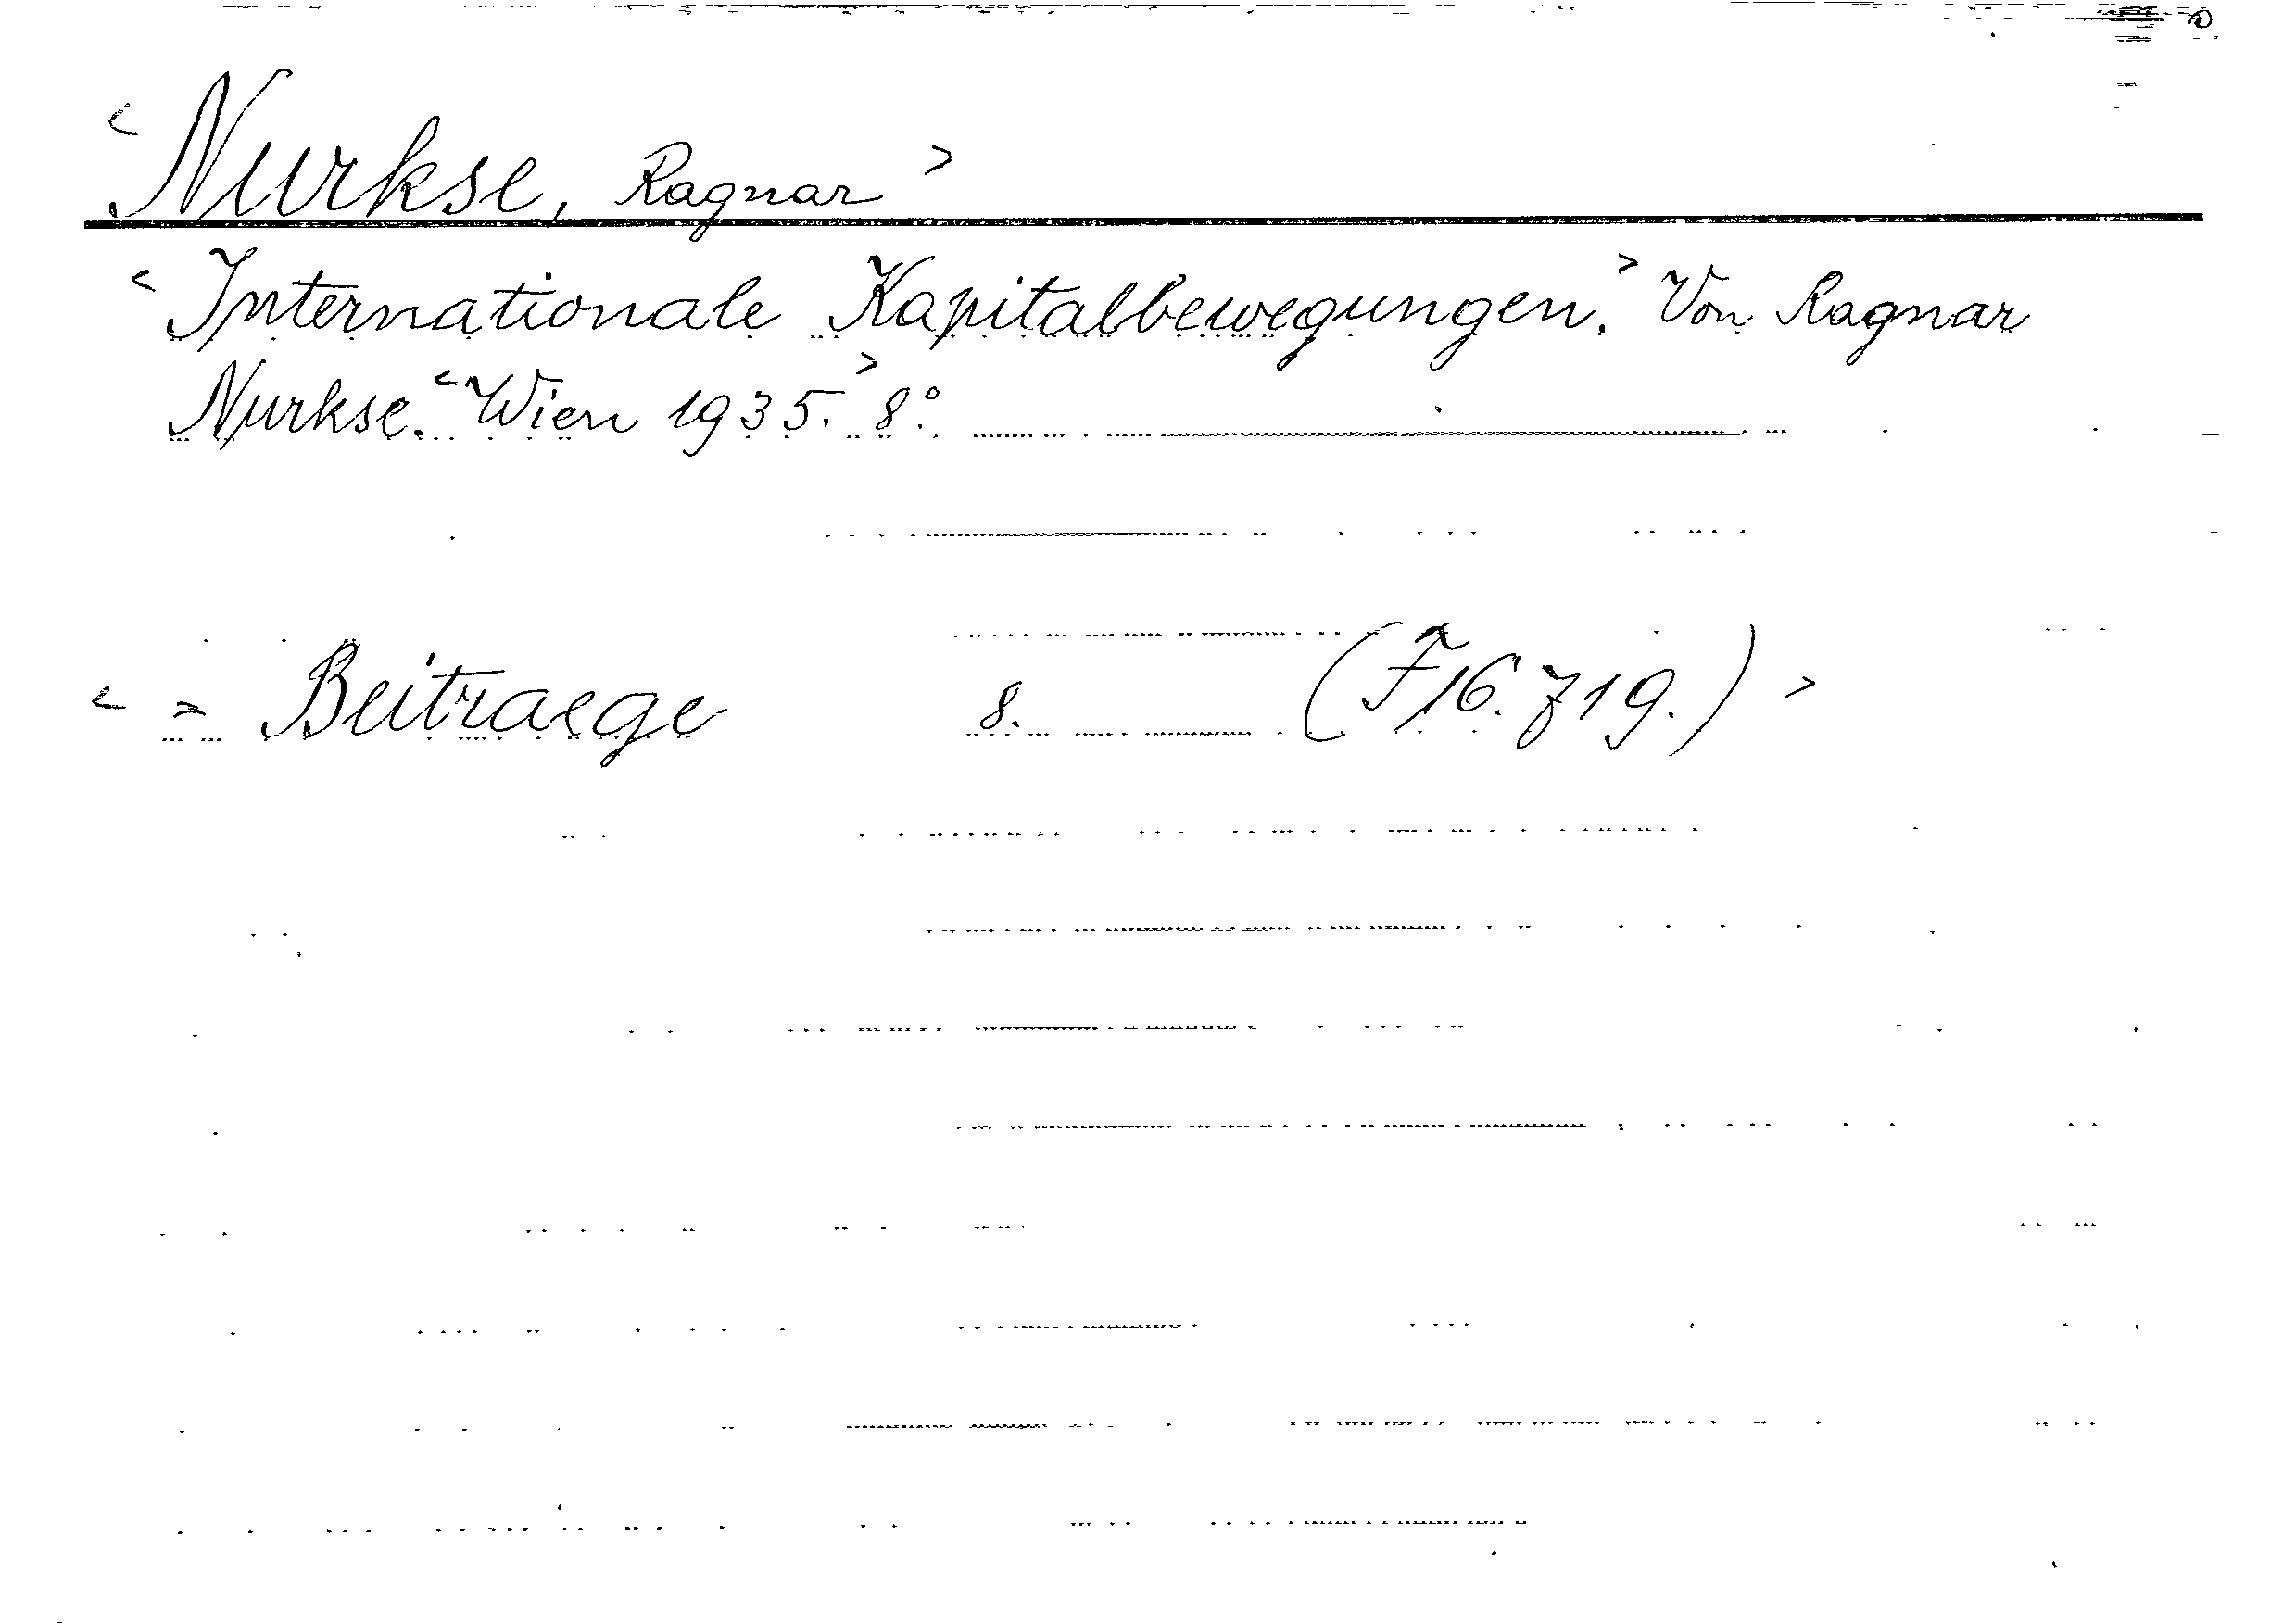 <Nurkse, Ragnar>
<Internationale Kapitalbewegungen.> Von Ragnar
Nurkse. <Wien 1935.> 8°.
< = Beitraege 8. (F16.Z19.) >